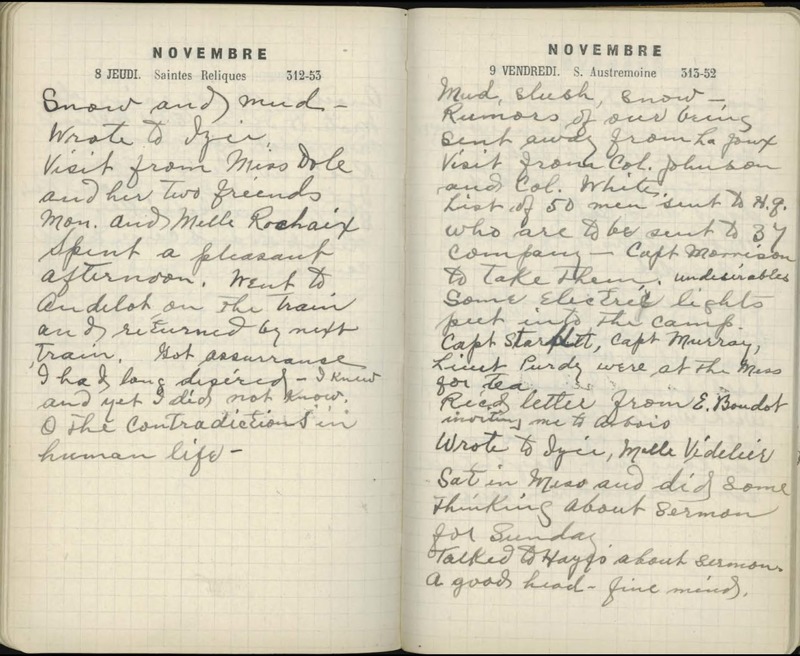 NOVEMBRE
8 JEUDI. Saintes Reliques 312-53
Snow and mud –
Wrote to Izie.
Visit from Miss Dole
and her two friends
Mon. and Melle Rochaix
Spent a pleasant
afternoon. Went to
Andelot on the train
and returned by next
train. Got assurranse
I had long desired – I knew
and yet I did not know.
O the contradictions in
human life –
NOVEMBRE
9 VENDREDI. S. Austremoine 313-52
Mud, slush, snow –
Rumors of our being
sent away from La Joux
Visit from Col. Johnson
and Col. White.
List of 50 men sent to H.q.
who are to be sent to 37
Company – Capt Morrison
to take them. undesirables
Some Electric lights
put into the camp.
Capt Murray,
Lieut Purdy were at the Mess
for tea
Rec'd letter from E. Boudot
inviting me to Arbois
Wrote to Izie, Melle Videlier
Sat in Mess and did some
thinking about sermon
for Sunday
Talked to about sermon.
A good head – fine mind.